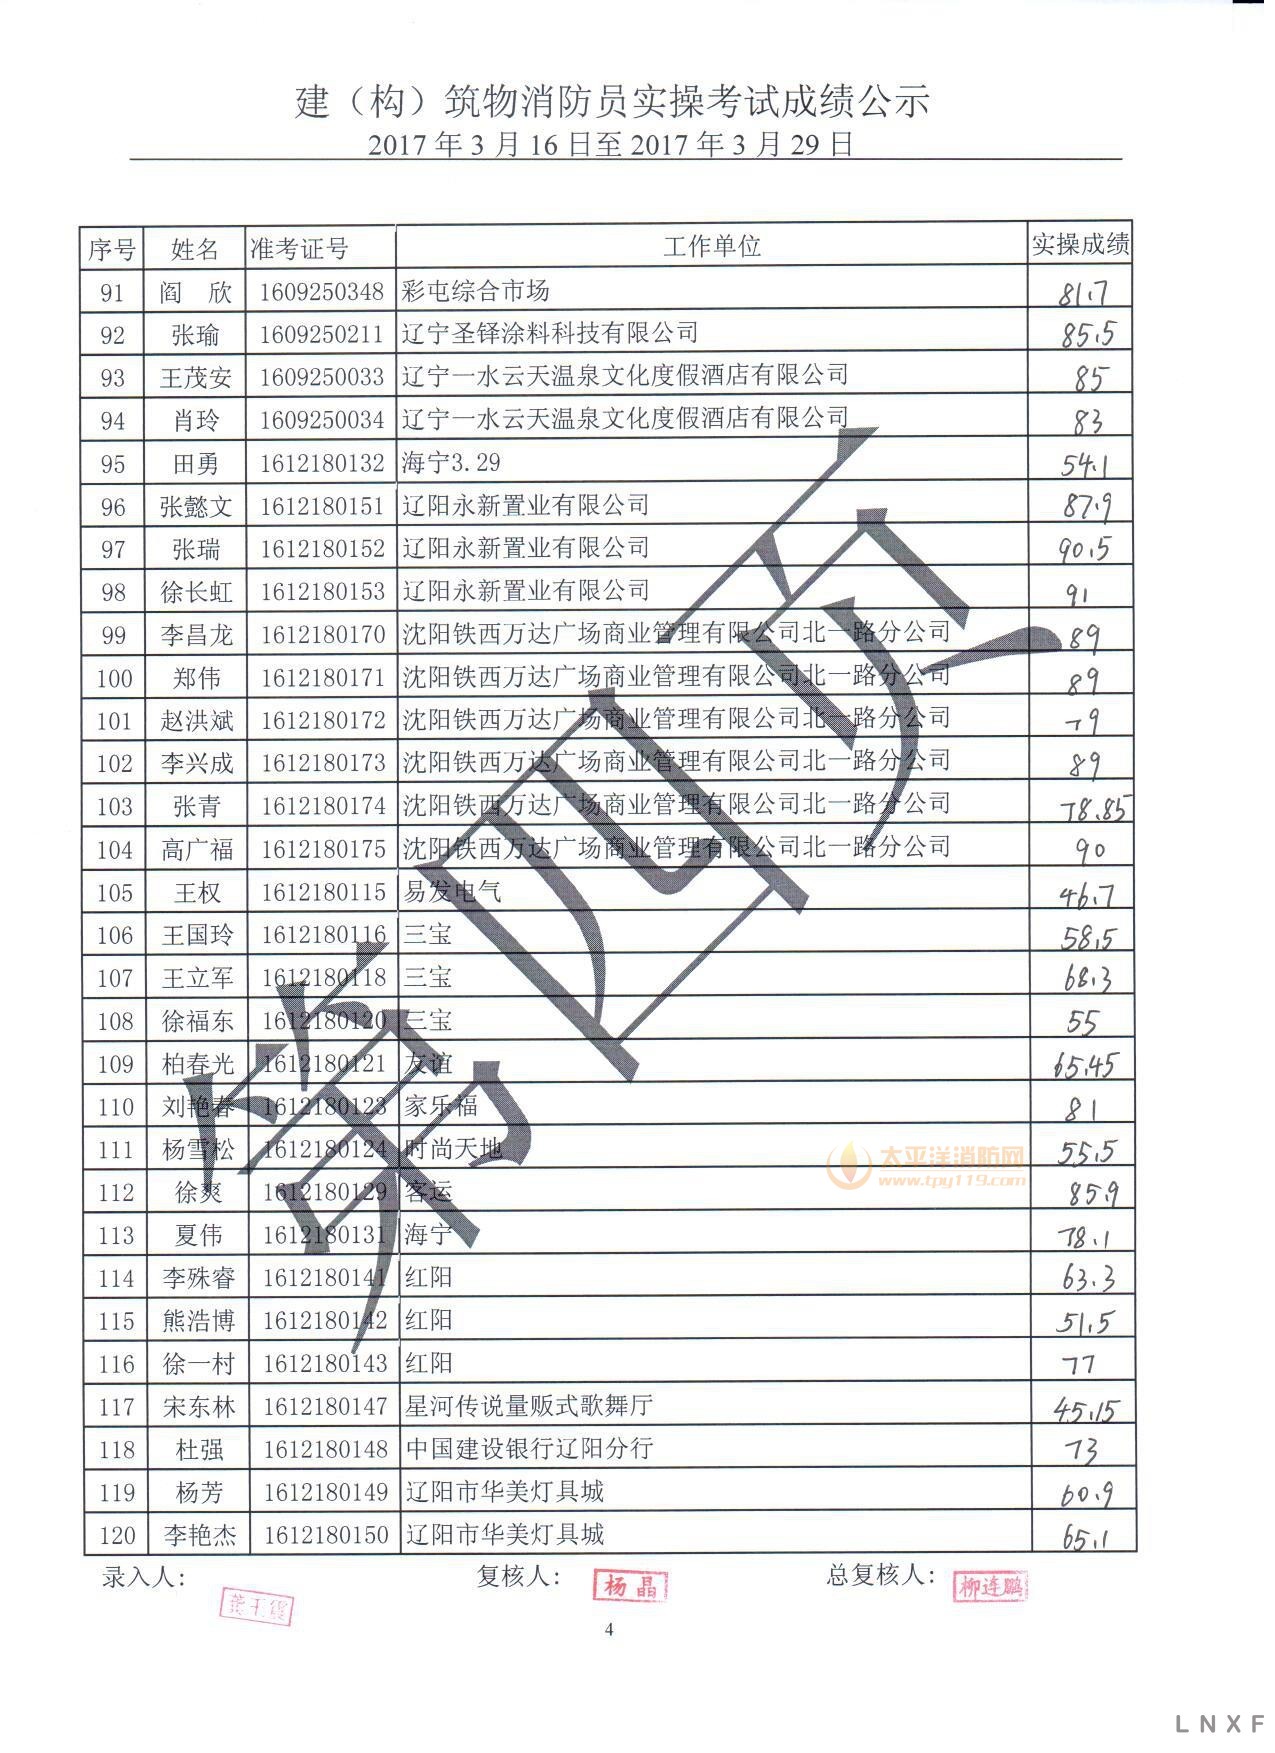 建（构）筑物消防员实操考试成绩公示
2017年3月16日至2017年3月29日
序号 姓名 准考证号 工作单位 实操成绩
91 阎 欣 1609250348 彩屯综合市场 81.7
92 张瑜 1609250211 辽宁圣铎涂料科技有限公司 85.5
93 王茂安 1609250033 辽宁一水云天温泉文化度假酒店有限公司 85
94 肖玲 1609250034 辽宁一水云天温泉文化度假酒店有限公司 83
95 田勇 1612180132 海宁3.29 54.1
96 张懿文 1612180151 辽阳永新置业有限公司 87.9
97 张瑞 1612180152 辽阳永新置业有限公司 90.5
98 徐长虹 1612180153 辽阳永新置业有限公司 91
99 李昌龙 1612180170 沈阳铁西万达广场商业管理有限公司北一路分公司 89
100 郑伟 1612180171 沈阳铁西万达广场商业管理有限公司北一路分公司 89
101 赵洪斌 1612180172 沈阳铁西万达广场商业管理有限公司北一路分公司 79
102 李兴成 1612180173 沈阳铁西万达广场商业管理有限公司北一路分公司 89
103 张青 1612180174 沈阳铁西万达广场商业管理有限公司北一路分公司 78.85
104 高广福 1612180175 沈阳铁西万达广场商业管理有限公司北一路分公司 90
105 王权 1612180115 易发电气 46.7
106 王国玲 1612180116 三宝 58.5
107 王立军 1612180118 三宝 68.3
108 徐福东 1612180120 三宝 55
109 柏春光 1612180121 友谊 65.45
110 刘艳春 1612180123 家乐福 81
111 杨雪松 1612180124 时尚天地 55.5
112 徐爽 1612180129 客运 85.9
113 夏伟 1612180131 海宁 78.1
114 李殊睿 1612180141 红阳 63.3
115 熊浩博 1612180142 红阳 51.5
116 徐一村 1612180143 红阳 77
117 宋东林 1612180147 星河传说量贩式歌舞厅 45.15
118 杜强 1612180148 中国建设银行辽阳分行 73
119 杨芳 1612180149 辽阳市华美灯具城 60.9
120 李艳杰 1612180150 辽阳市华美灯具城 65.1
第四页
太平洋消防网
www.tpy119.com
录入人： 复核人：杨晶 总复核人：柳连鹏
4
LNXF